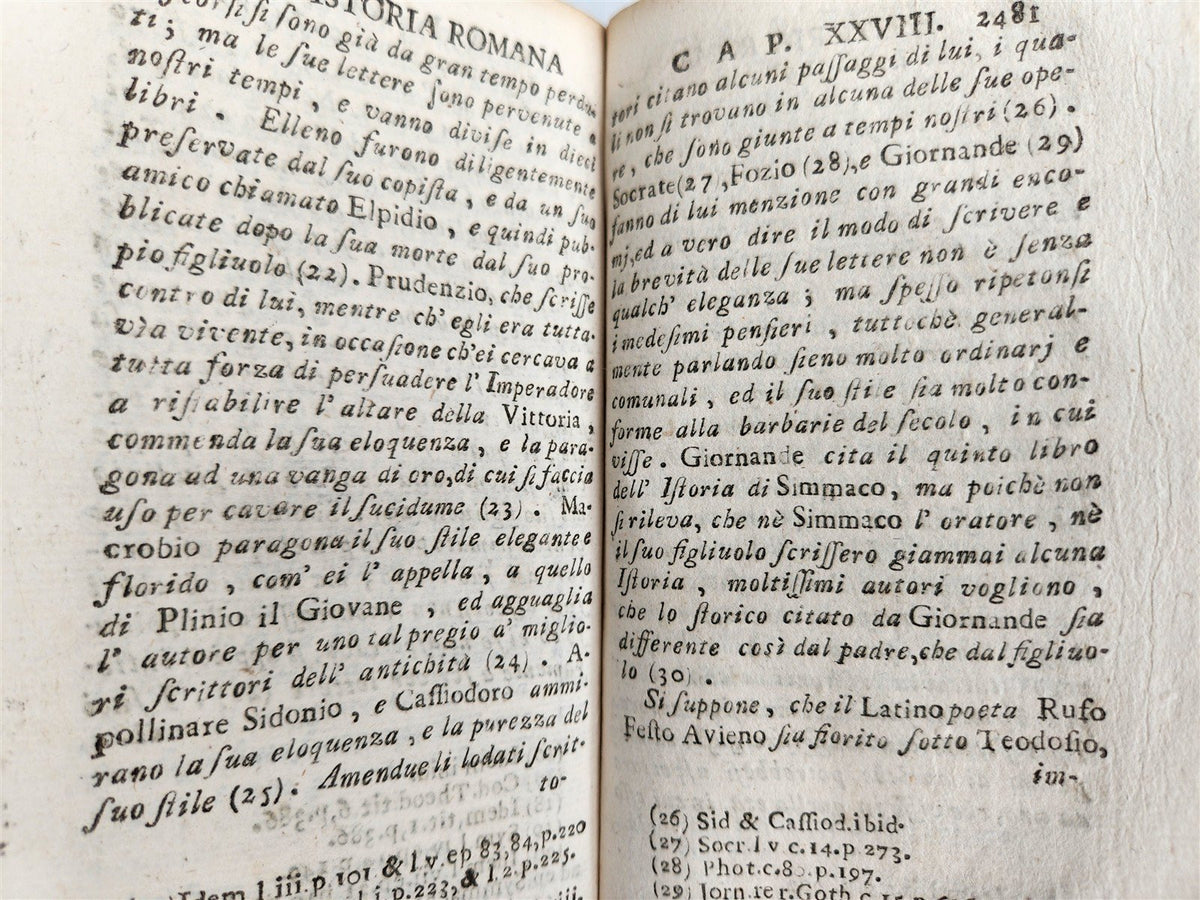 ISTORIA ROMANA
si sono già da gran tempo perdu-
ti; ma le sue lettere sono pervenute a
nostri tempi, e vanno divise in dieci
libri. Elleno furono diligentemente
preservate dal suo copista, e da un suo
amico chiamato Elpidio, e quindi pub-
blicate dopo la sua morte dal suo pro-
pio figliuolo (22). Prudenzio, che scrisse
contro di lui, mentre ch' egli era tutta-
vìa vivente, in occasione ch'ei cercava a
tutta forza di persuadere l' Imperadore
a ristabilire l' altare della Vittoria,
commenda la sua eloquenza, e la para-
gona ad una vanga di oro, di cui si faccia
uso per cavare il sucidume (23). Ma-
crobio paragona il suo stile elegante e
florido, com' ei l' appella, a quello
di Plinio il Giovane, ed agguaglia
l' autore per uno tal pregio a' miglio-
ri scrittori dell' antichità (24). A-
pollinare Sidonio, e Cassiodoro ammi-
rano la sua eloquenza, e la purezza del
suo stile (25). Amendue li lodati scrit-
to-
Idem l.iii.p.101 & l.v.ep 83,84,p.220
l.i.p.223,& l.2.p.225.
CAP. XXVIII. 2481
tori citano alcuni passaggi di lui, i qua-
li non si trovano in alcuna delle sue ope-
re, che sono giunte a tempi nostri (26).
Socrate (27), Fozio (28), e Giornande (29)
fanno di lui menzione con grandi enco-
mj, ed a vero dire il modo di scrivere e
la brevità delle sue lettere non è senza
qualch' eleganza; ma spesso ripetonsi
i medesimi pensieri, tuttochè general-
mente parlando sieno molto ordinarj e
comunali, ed il suo stile sia molto con-
forme alla barbarie del secolo, in cui
visse. Giornande cita il quinto libro
dell' Istoria di Simmaco, ma poichè non
si rileva, che nè Simmaco l' oratore, nè
il suo figliuolo scrissero giammai alcuna
Istoria, moltissimi autori vogliono,
che lo storico citato da Giornande sia
differente così dal padre, che dal figliuo-
lo (30).
Si suppone, che il Latino poeta Rufo
Festo Avieno sia fiorito sotto Teodosio,
im-
(26) Sid & Cassiod.ibid.
(27) Socr.l v c.14.p 273.
(28) Phot.c.80.p.197.
(29) Jorn.re r.Goth c.15